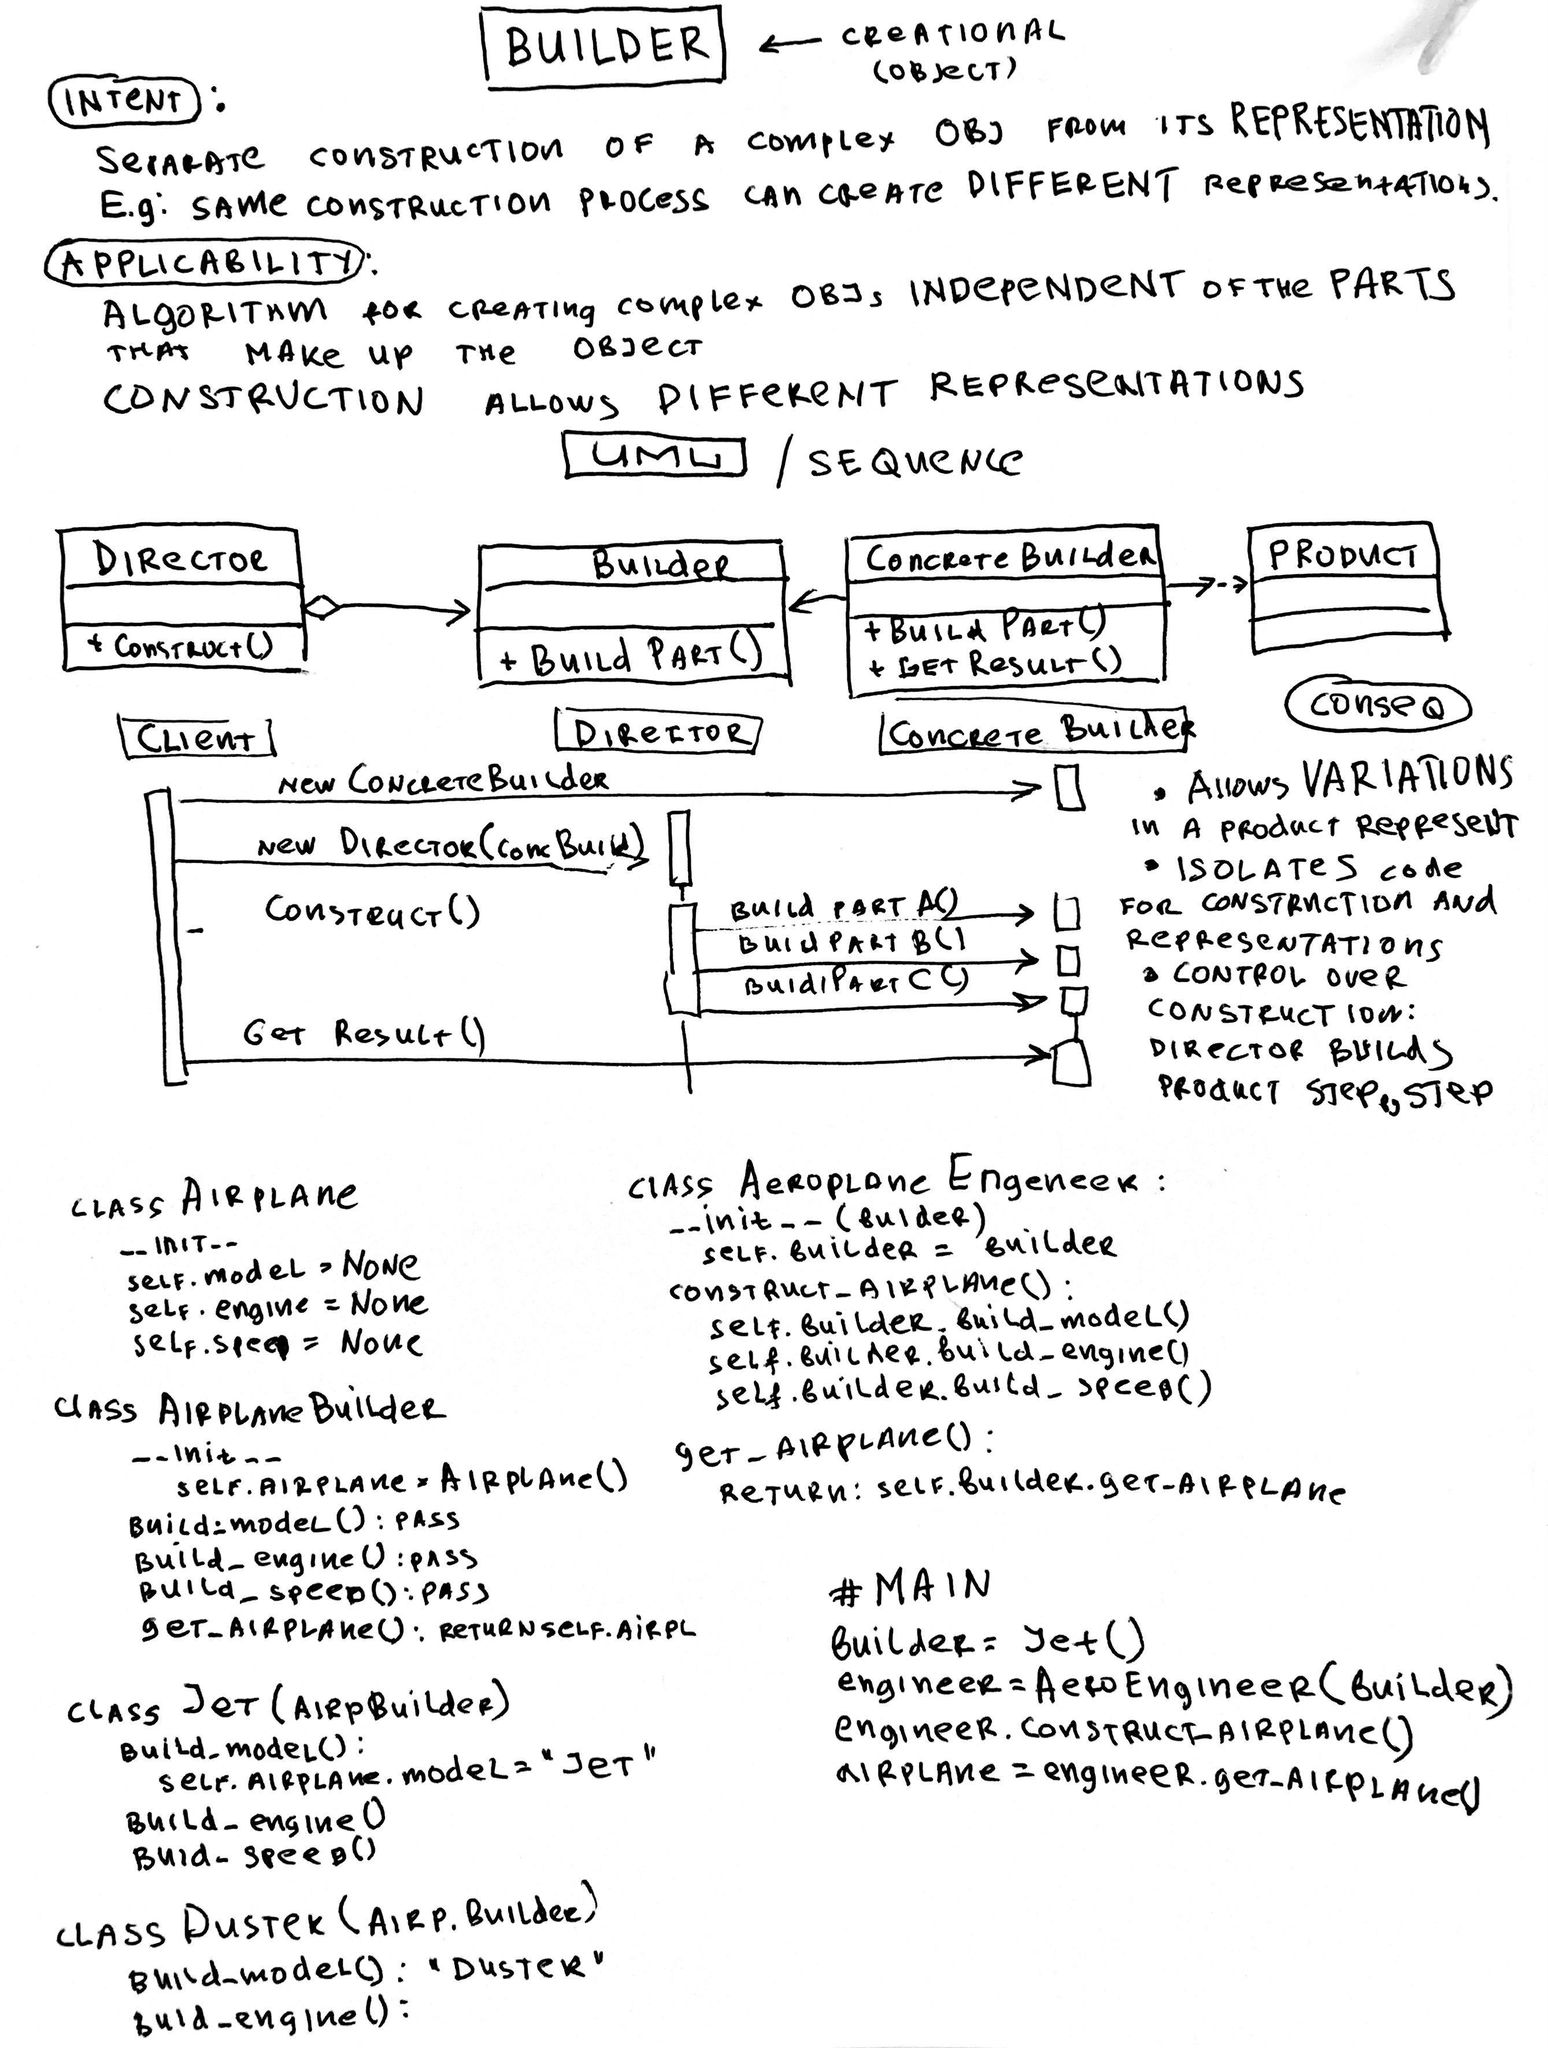 BUILDER ← CREATIONAL
(OBJECT)
INTENT:
SEPARATE CONSTRUCTION OF A COMPLEX OBJ FROM ITS REPRESENTATION
E.g: SAME CONSTRUCTION PROCESS CAN CREATE DIFFERENT REPRESENTATIONS.
APPLICABILITY:
ALGORITHM FOR CREATING COMPLEX OBJs INDEPENDENT OF THE PARTS
THAT MAKE UP THE OBJECT
CONSTRUCTION ALLOWS DIFFERENT REPRESENTATIONS
UML / SEQUENCE
DIRECTOR
+ CONSTRUCT()
Builder
+ Build PART()
CONCRETE BUILDER
+ BUILD PART()
+ GET RESULT()
PRODUCT
CLIENT
DIRECTOR
CONCRETE BUILDER
NEW CONCRETEBUILDER
NEW DIRECTOR(CONCBUILD)
CONSTRUCT()
BUILD PART A()
BUILD PART B()
BUILD PART C()
GET RESULT()
CONSEQ
• ALLOWS VARIATIONS
IN A PRODUCT REPRESENT
• ISOLATES CODE
FOR CONSTRUCTION AND
REPRESENTATIONS
• CONTROL OVER
CONSTRUCTION:
DIRECTOR BUILDS
PRODUCT STEP by STEP
CLASS AIRPLANE
__INIT__
SELF.MODEL = NONE
SELF.ENGINE = NONE
SELF.SPEED = NONE
CLASS AIRPLANEBUILDER
__INIT__
SELF.AIRPLANE = AIRPLANE()
BUILD_MODEL(): PASS
BUILD_ENGINE(): PASS
BUILD_SPEED(): PASS
GET_AIRPLANE(): RETURN SELF.AIRPL
CLASS JET (AIRPBUILDER)
BUILD_MODEL():
SELF.AIRPLANE.MODEL = "JET"
BUILD_ENGINE()
BUID_SPEED()
CLASS DUSTER (AIRP.BUILDER)
BUILD_MODEL(): "DUSTER"
BUID_ENGINE():
CLASS AEROPLANE ENGENEER:
__init__(BULDER)
SELF.BUILDER = BUILDER
CONSTRUCT_AIRPLANE():
SELF.BUILDER.BUILD_MODEL()
SELF.BUILDER.BUILD_ENGINE()
SELF.BUILDER.BUILD_SPEED()
GET_AIRPLANE():
RETURN: SELF.BUILDER.GET_AIRPLANE
# MAIN
BUILDER = JET()
ENGINEER = AEROENGINEER(BUILDER)
ENGINEER.CONSTRUCT_AIRPLANE()
AIRPLANE = ENGINEER.GET_AIRPLANE()